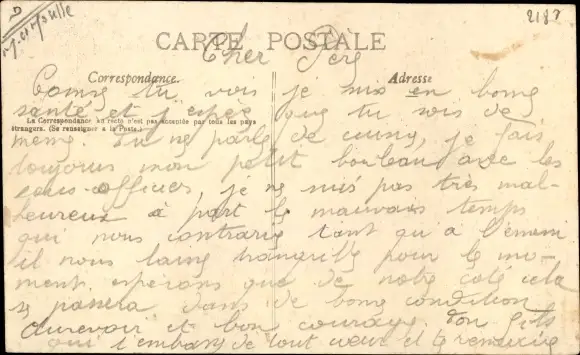 2187
CARTE POSTALE
Cher Père
Correspondance.
Adresse
Comme tu vois je suis en bonne
santé et j'espère que tu sois de
La Correspondance au recto n'est pas acceptée par tous les pays
étrangers. (Se renseigner à la Poste.)
meme Tu me parle de cuisine, je fais
toujours mon petit bouleau avec les
sous-officier, je ne suis pas très mal-
heureux à part le mauvais temps
qui nous contrarie tant qu'a l'ennemi
il nous laisse tranquille pour le mo-
ment. espérons que de notre coté cela
se passera dans de bonne condition
Aurevoir et bon courage. Ton fils
qui t'embrasse de tout cœur et te remercie